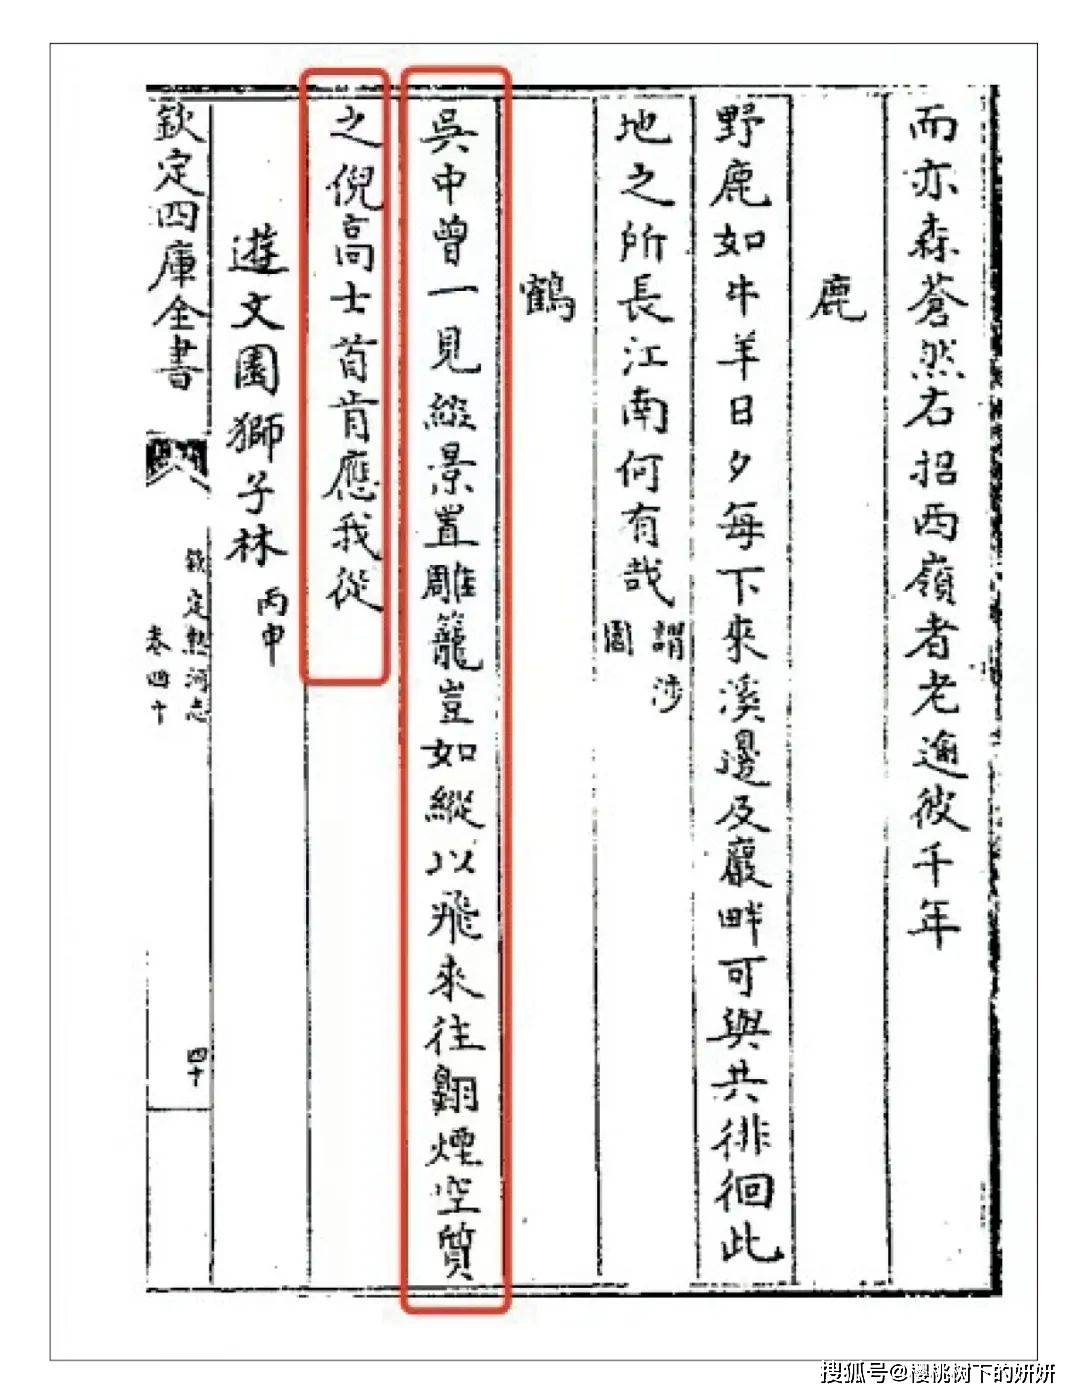 而亦森蒼然右招西嶺者老邁彼千年
鹿
野鹿如牛羊日夕每下來溪邊及巖畔可與共徘徊此
地之所長江南何有哉
謂涉
園
鶴
吳中曾一見縱景置雕籠豈如縱以飛來往翺煙空質
之倪高士首肯應我從
遊文園獅子林
丙申
欽定四庫全書
欽定熱河志
卷四十
四十
搜狐号@樱桃树下的妍妍